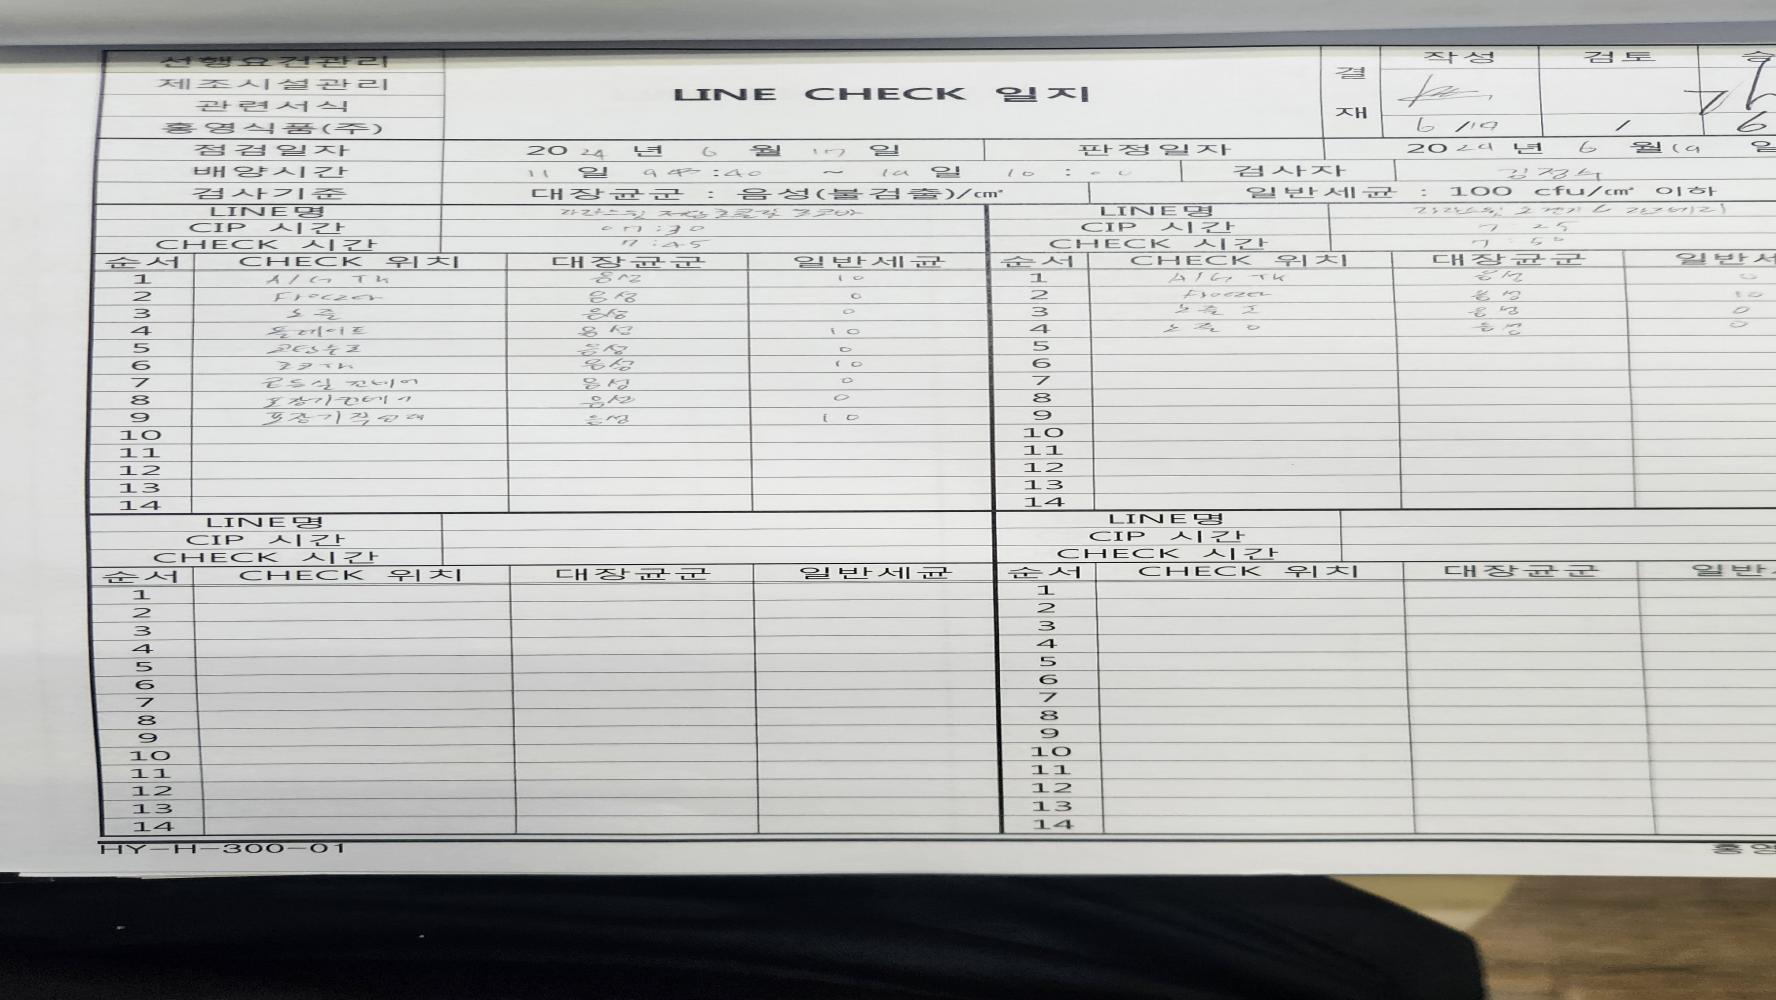 선행요건관리
제조시설관리
관련서식
홍영식품(주)
LINE CHECK 일지
결재 작성 검토 승
6/19 / 6
점검일자 2024 년 6 월 17 일 판정일자 2024 년 6 월 19 일
배양시간 일 :40 ~ 19 일 10 : 00 검사자
검사기준 대장균군 : 음성(불검출)/㎠ 일반세균 : 100 cfu/㎠ 이하
LINE명 LINE명
CIP 시간 07:30 CIP 시간 7 : 25
CHECK 시간 7:45 CHECK 시간 7 : 50
순서 CHECK 위치 대장균군 일반세균 순서 CHECK 위치 대장균군 일반세
1 A/G TK 음성 10 1 A/G TK 음성 0
2 Freezer 음성 0 2 Freezer 음성 10
3 노즐 음성 0 3 노즐 음성 0
4 플레이트 음성 10 4 노즐 음성 0
5 음성 0 5
6 음성 10 6
7 컨베어 음성 0 7
8 포장기컨베어 음성 0 8
9 포장기작업대 음성 10 9
10 10
11 11
12 12
13 13
14 14
LINE명 LINE명
CIP 시간 CIP 시간
CHECK 시간 CHECK 시간
순서 CHECK 위치 대장균군 일반세균 순서 CHECK 위치 대장균군 일반
1 1
2 2
3 3
4 4
5 5
6 6
7 7
8 8
9 9
10 10
11 11
12 12
13 13
14 14
HY-H-300-01 홍영